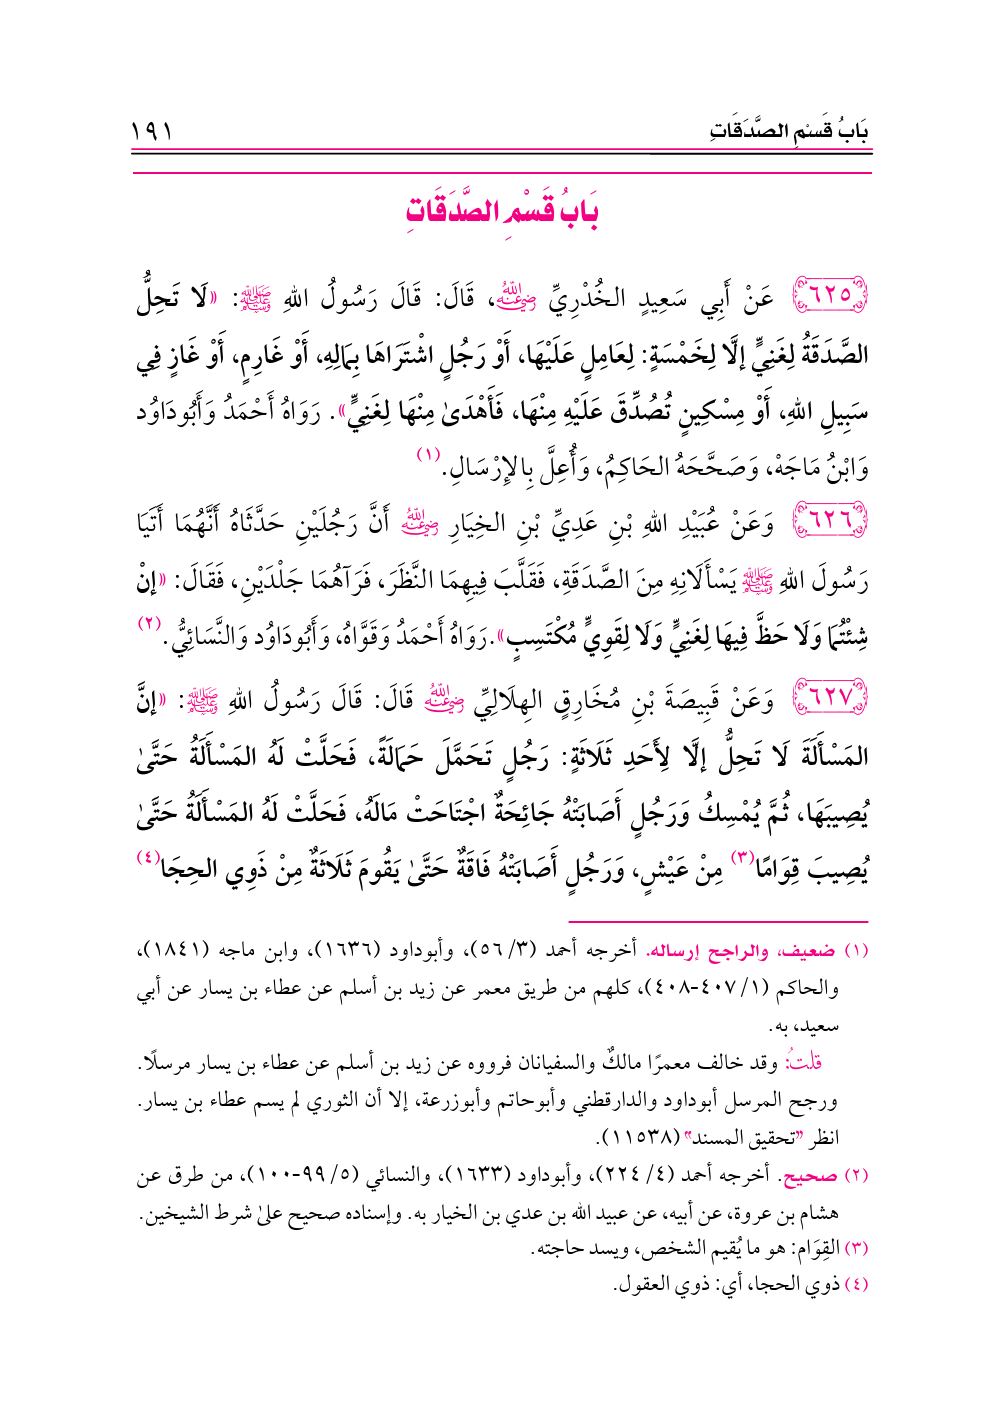 بَابُ قَسْمِ الصَّدَقَاتِ
١٩١
بَابُ قَسْمِ الصَّدَقَاتِ
٦٢٥ عَنْ أَبِي سَعِيدٍ الخُدْرِيِّ رضي الله عنه، قَالَ: قَالَ رَسُولُ اللهِ ﷺ: «لَا تَحِلُّ
الصَّدَقَةُ لِغَنِيٍّ إلَّا لِخَمْسَةٍ: لِعَامِلٍ عَلَيْهَا، أَوْ رَجُلٍ اشْتَرَاهَا بِمَالِهِ، أَوْ غَارِمٍ، أَوْ غَازٍ فِي
سَبِيلِ اللهِ، أَوْ مِسْكِينٍ تُصُدِّقَ عَلَيْهِ مِنْهَا، فَأَهْدَىٰ مِنْهَا لِغَنِيٍّ». رَوَاهُ أَحْمَدُ وَأَبُودَاوُد
وَابْنُ مَاجَهْ، وَصَحَّحَهُ الحَاكِمُ، وَأُعِلَّ بِالإِرْسَالِ.(١)
٦٢٦ وَعَنْ عُبَيْدِ اللهِ بْنِ عَدِيِّ بْنِ الخِيَارِ رضي الله عنه أَنَّ رَجُلَيْنِ حَدَّثَاهُ أَنَّهُمَا أَتَيَا
رَسُولَ اللهِ ﷺ يَسْأَلَانِهِ مِنَ الصَّدَقَةِ، فَقَلَّبَ فِيهِمَا النَّظَرَ، فَرَآهُمَا جَلْدَيْنِ، فَقَالَ: «إنْ
شِئْتُمَا وَلَا حَظَّ فِيهَا لِغَنِيٍّ وَلَا لِقَوِيٍّ مُكْتَسِبٍ».رَوَاهُ أَحْمَدُ وَقَوَّاهُ، وَأَبُودَاوُد وَالنَّسَائِيُّ.(٢)
٦٢٧ وَعَنْ قَبِيصَةَ بْنِ مُخَارِقٍ الهِلَالِيِّ رضي الله عنه قَالَ: قَالَ رَسُولُ اللهِ ﷺ: «إنَّ
المَسْأَلَةَ لَا تَحِلُّ إلَّا لِأَحَدِ ثَلَاثَةٍ: رَجُلٍ تَحَمَّلَ حَمَالَةً، فَحَلَّتْ لَهُ المَسْأَلَةُ حَتَّىٰ
يُصِيبَهَا، ثُمَّ يُمْسِكُ وَرَجُلٍ أَصَابَتْهُ جَائِحَةٌ اجْتَاحَتْ مَالَهُ، فَحَلَّتْ لَهُ المَسْأَلَةُ حَتَّىٰ
يُصِيبَ قِوَامًا(٣) مِنْ عَيْشٍ، وَرَجُلٍ أَصَابَتْهُ فَاقَةٌ حَتَّىٰ يَقُومَ ثَلَاثَةٌ مِنْ ذَوِي الحِجَا(٤)
(١) ضعيف، والراجح إرساله. أخرجه أحمد (٣/ ٥٦)، وأبوداود (١٦٣٦)، وابن ماجه (١٨٤١)،
والحاكم (١/ ٤٠٧-٤٠٨)، كلهم من طريق معمر عن زيد بن أسلم عن عطاء بن يسار عن أبي
سعيد، به.
قلتُ: وقد خالف معمرًا مالكٌ والسفيانان فرووه عن زيد بن أسلم عن عطاء بن يسار مرسلًا.
ورجح المرسل أبوداود والدارقطني وأبوحاتم وأبوزرعة، إلا أن الثوري لم يسم عطاء بن يسار.
انظر "تحقيق المسند" (١١٥٣٨).
(٢) صحيح. أخرجه أحمد (٤/ ٢٢٤)، وأبوداود (١٦٣٣)، والنسائي (٥/ ٩٩-١٠٠)، من طرق عن
هشام بن عروة، عن أبيه، عن عبيد الله بن عدي بن الخيار به. وإسناده صحيح علىٰ شرط الشيخين.
(٣) القِوَام: هو ما يُقيم الشخص، ويسد حاجته.
(٤) ذوي الحجا، أي: ذوي العقول.